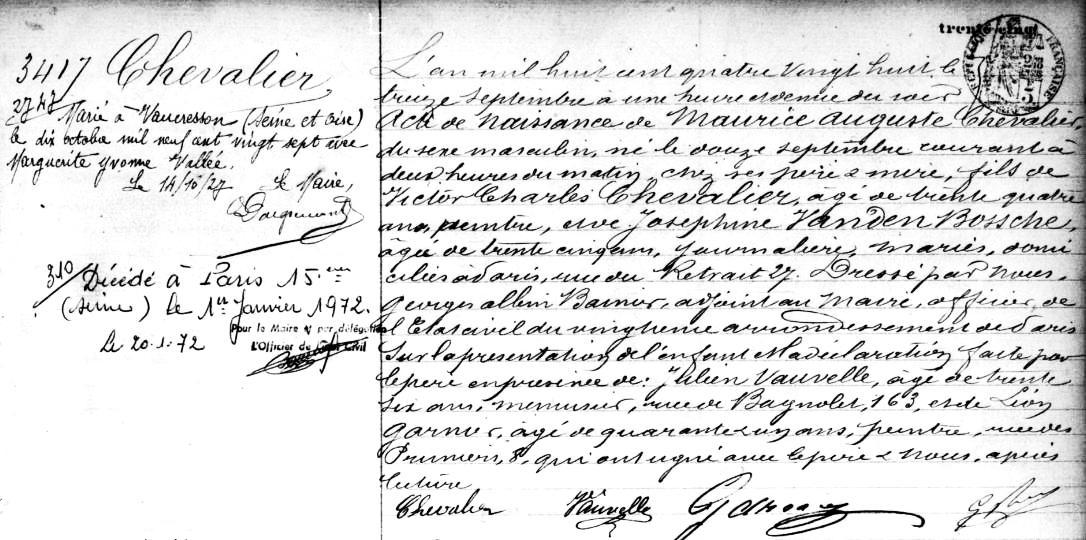 trente cinq
RÉPUBLIQUE FRANÇAISE
3417 Chevalier
2747
Marié à Vaucresson (Seine et Oise)
le dix octobre mil neuf cent vingt sept avec
Marguerite Yvonne Vallée.
Le 14/10/27 Le Maire,
310
Décédé à Paris 15eme
(seine) le 1er Janvier 1972.
Pour le Maire par délégation
Le 20-1-72 L'Officier de l'Etat Civil
L'an mil huit cent quatre vingt huit le
treize septembre à une heure du soir
Acte de naissance de Maurice Auguste Chevalier,
du sexe masculin, né le douze septembre courant à
deux heures du matin, chez ses père & mère, fils de
Victor Charles Chevalier, âgé de trente quatre
ans, peintre, et de Joséphine Vanden Bossche,
âgée de trente cinq ans, journalière, mariés, domi
ciliés à Paris, rue du Retrait 27. Dressé par nous,
Georges, adjoint au maire, officier de
l'Etat civil du vingtième arrondissement de Paris
Sur la présentation de l'enfant & la déclaration faite par
le père en présence de: Julien Vauvelle, âgé de trente
six ans, menuisier, rue de Bagnolet, 163, et de Léon
Garnier, âgé de quarante & un ans, peintre, rue des
Pruniers, 8, qui ont signé avec le père & nous, après
lecture
Chevalier Vauvelle